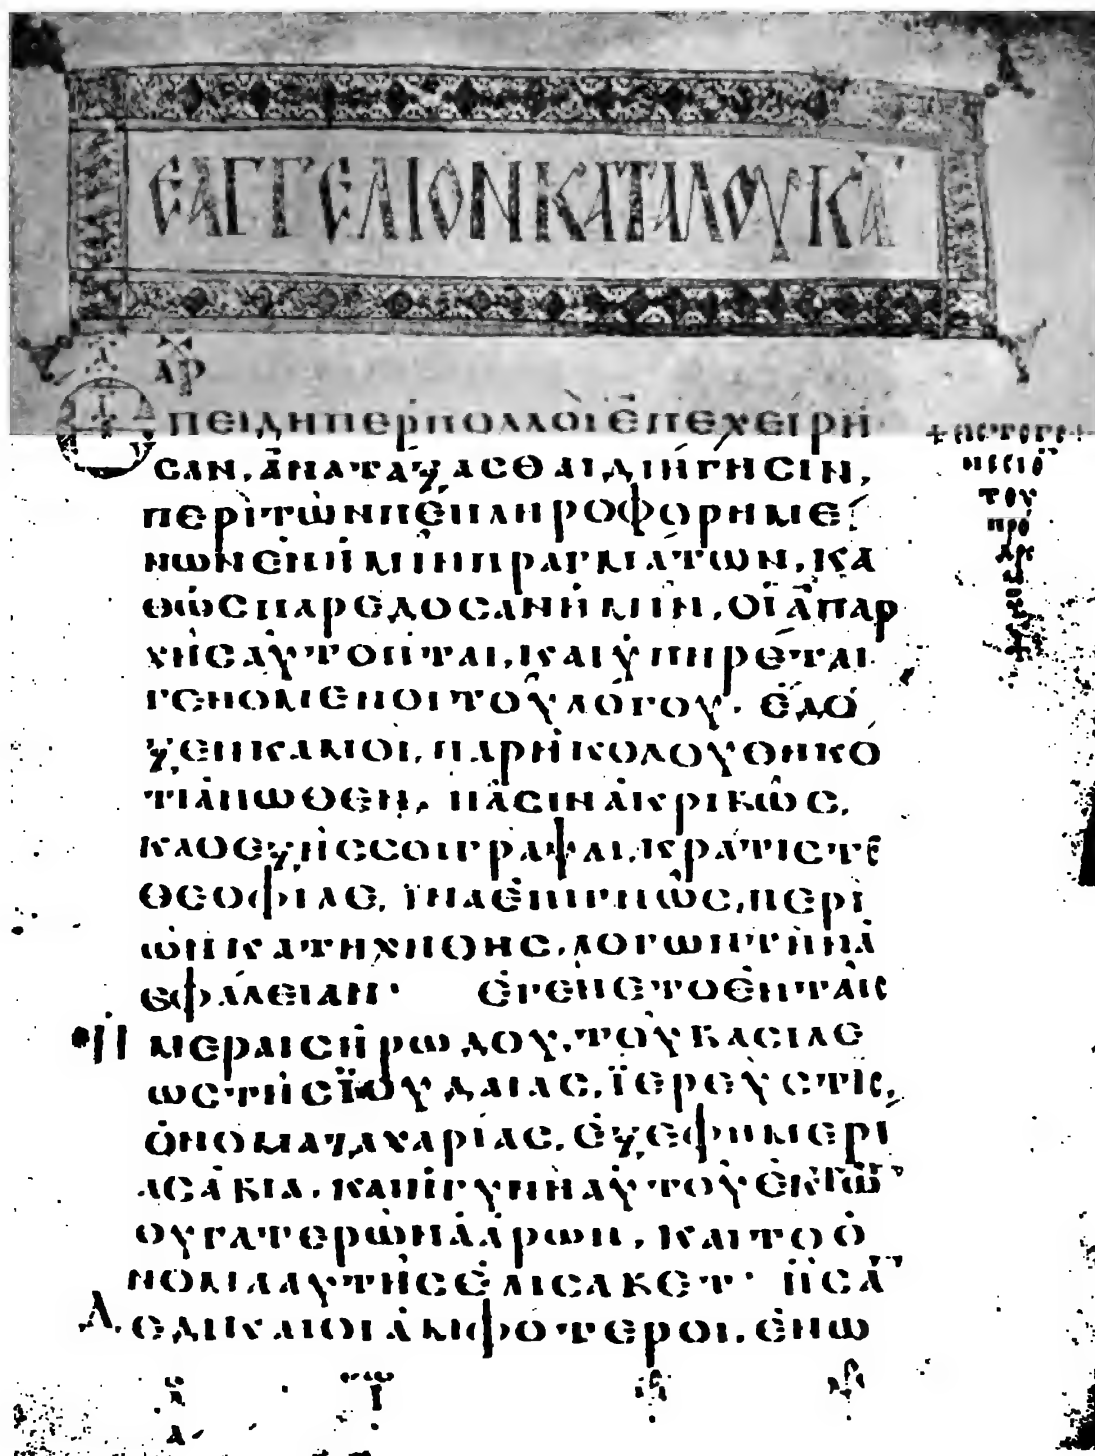 ΕΑΓΓΕΛΙΟΝ ΚΑΤΑ ΛΟΥΚΑ
ΑΡ
ΕΠΕΙΔΗΠΕΡ ΠΟΛΛΟΙ ΕΠΕΧΕΙΡΗ
ΣΑΝ, ΑΝΑΤΑΞΑΣΘΑΙ ΔΙΗΓΗΣΙΝ,
ΠΕΡΙ ΤΩΝ ΠΕΠΛΗΡΟΦΟΡΗΜΕ
ΝΩΝ ΕΝ ΗΜΙΝ ΠΡΑΓΜΑΤΩΝ, ΚΑ
ΘΩΣ ΠΑΡΕΔΟΣΑΝ ΗΜΙΝ, ΟΙ ΑΠ ΑΡ
ΧΗΣ ΑΥΤΟΠΤΑΙ, ΚΑΙ ΥΠΗΡΕΤΑΙ
ΓΕΝΟΜΕΝΟΙ ΤΟΥ ΛΟΓΟΥ. ΕΔΟ
ΞΕΝ ΚΑΜΟΙ, ΠΑΡΗΚΟΛΟΥΘΗΚΟ
ΤΙ ΑΝΩΘΕΝ, ΠΑΣΙΝ ΑΚΡΙΒΩΣ,
ΚΑΘΕΞΗΣ ΣΟΙ ΓΡΑΨΑΙ, ΚΡΑΤΙΣΤΕ
ΘΕΟΦΙΛΕ, ΪΝΑ ΕΠΙΓΝΩΣ, ΠΕΡΙ
ΩΝ ΚΑΤΗΧΗΘΗΣ, ΛΟΓΩΝ ΤΗΝ Α
ΣΦΑΛΕΙΑΝ· ΕΓΕΝΕΤΟ ΕΝ ΤΑΙΣ
Η ΜΕΡΑΙΣ ΗΡΩΔΟΥ, ΤΟΥ ΒΑΣΙΛΕ
ΩΣ ΤΗΣ ΪΟΥΔΑΙΑΣ, ΪΕΡΕΥΣ ΤΙΣ,
ΟΝΟΜΑ ΖΑΧΑΡΙΑΣ, ΕΞ ΕΦΗΜΕΡΙ
ΑΣ ΑΒΙΑ, ΚΑΙ Η ΓΥΝΗ ΑΥΤΟΥ ΕΚ ΤΩ
ΘΥΓΑΤΕΡΩΝ ΑΑΡΩΝ, ΚΑΙ ΤΟ Ο
ΝΟΜΑ ΑΥΤΗΣ ΕΛΙΣΑΒΕΤ· ΗΣΑ
Δ ΕΔΙΚΑΙΟΙ ΑΜΦΟΤΕΡΟΙ, ΕΝΩ